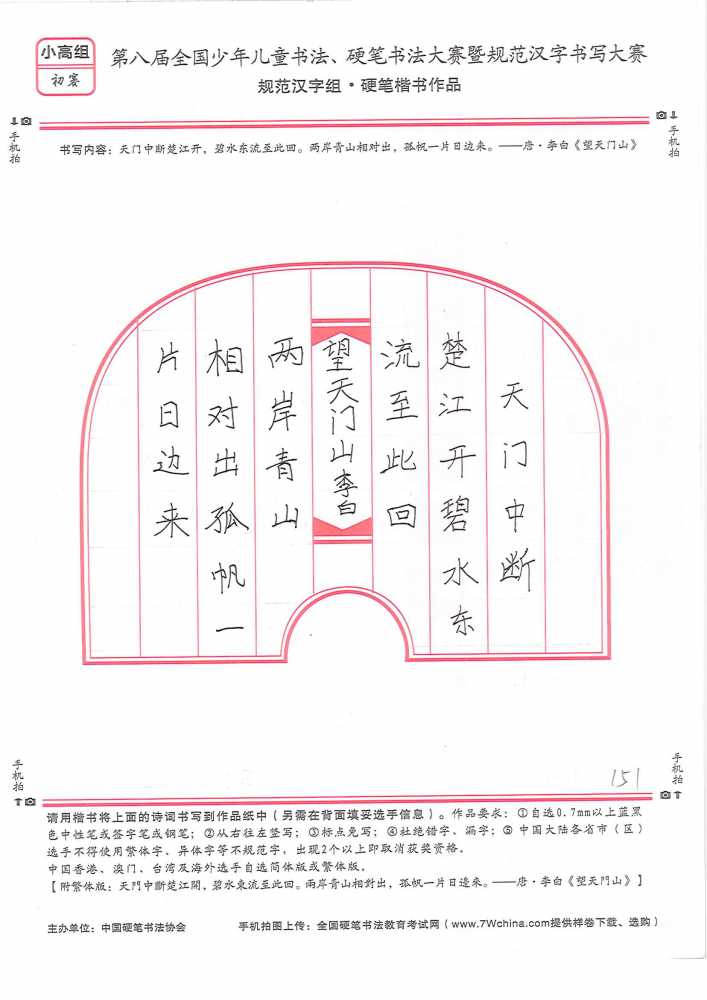 小高组
初赛
第八届全国少年儿童书法、硬笔书法大赛暨规范汉字书写大赛
规范汉字组·硬笔楷书作品
手机拍
手机拍
书写内容：天门中断楚江开，碧水东流至此回。两岸青山相对出，孤帆一片日边来。——唐·李白《望天门山》
天门中断
楚江开碧水东
流至此回
望天门山李白
两岸青山
相对出孤帆一
片日边来
151
手机拍
手机拍
请用楷书将上面的诗词书写到作品纸中（另需在背面填妥选手信息）。作品要求：①自选0.7mm以上蓝黑
色中性笔或签字笔或钢笔；②从右往左竖写；③标点免写；④杜绝错字、漏字；⑤中国大陆各省市（区）
选手不得使用繁体字、异体字等不规范字，出现2个以上即取消获奖资格。
中国香港、澳门、台湾及海外选手自选简体版或繁体版。
【附繁体版：天門中斷楚江開，碧水東流至此回。兩岸青山相對出，孤帆一片日邊來。——唐·李白《望天門山》】
主办单位：中国硬笔书法协会
手机拍图上传：全国硬笔书法教育考试网（www.7Wchina.com提供样卷下载、选购）